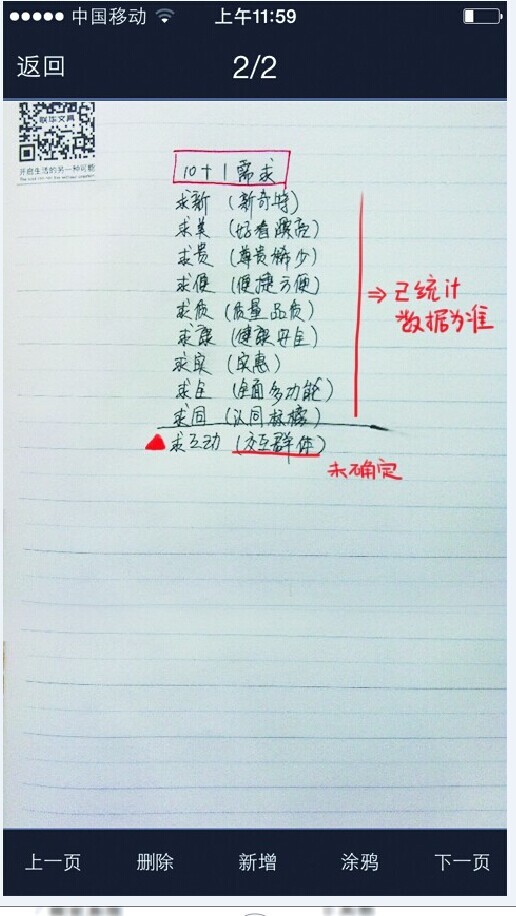 中国移动 上午11:59
返回 2/2
联华文具
开启生活的另一种可能
10+1需求
求新(新奇特)
求美(好看漂亮)
求贵(尊贵稀少)
求便(便捷方便)
求质(质量品质)
求康(健康安全)
求实(实惠)
求全(全面多功能)
求同(认同
⇒已统计
数据为准
求互动(交互群体)
未确定
上一页 删除 新增 涂鸦 下一页